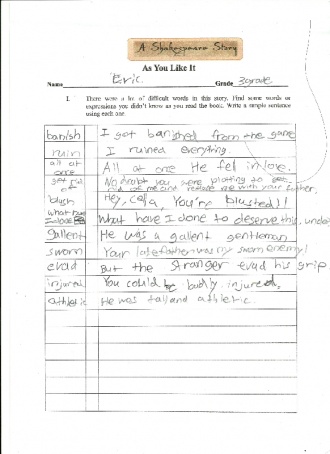 A Shakespeare Story
As You Like It
Name Eric Grade 3grade
1. There were a lot of difficult words in this story. Find some words or
expressions you didn't know as you read the book. Write a simple sentence
using each one.
banish I got banished from the game
ruin I ruined everything.
all at one All at one He fell in love.
get rid of No doubt you were plotting to get rid of me and replace me with your father.
blush Hey, Celia, You're blusted!!
what have I done What have I done to deserve this, uncle
gallent He was a gallent gentleman
sworn Your late father was my sworn enemy!
evad But the stranger evad his grip
injured You could be badly injured.
athletic He was tall and athletic.